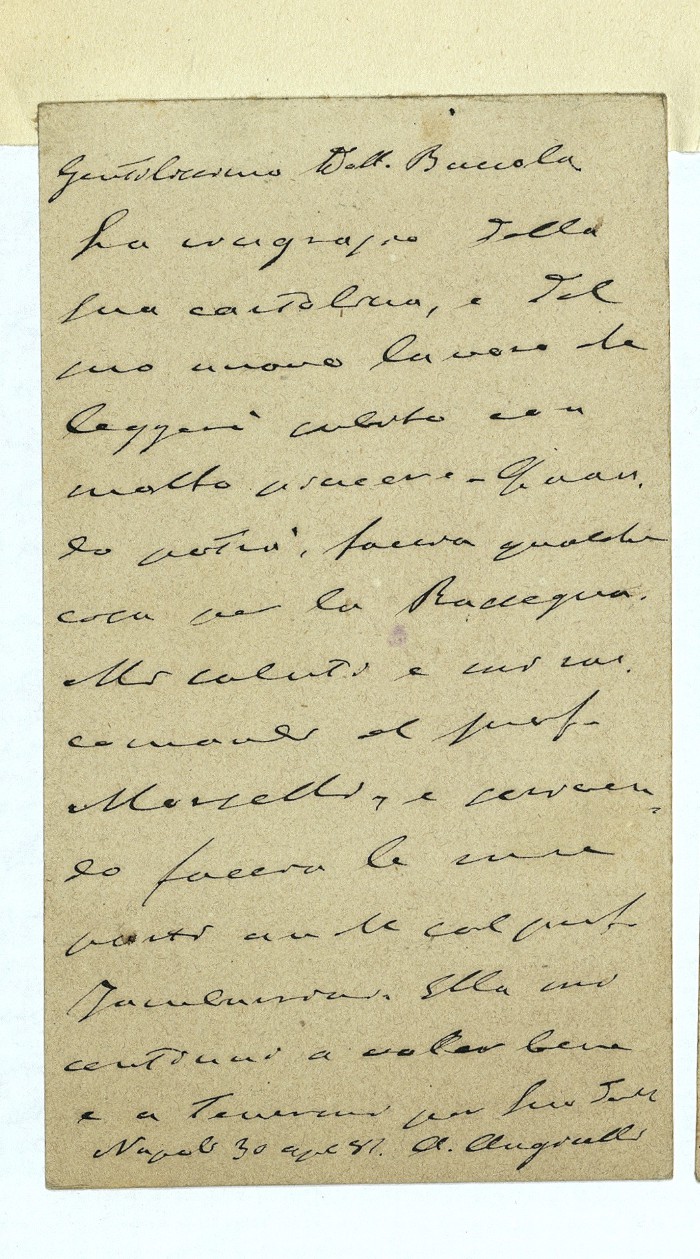 Gentilissimo Dott. Buccola
La ringrazio della
sua cartolina, e del
suo nuovo lavoro che
leggerò subito con
molto piacere - Quan,
do potrà, faccia qualche
cosa per la Rassegna.
Mi saluti e mi rac,
comandi al prof.
Morselli, e scriven,
do faccia le mie
parti anche col prof.
Tamburini. Ella mi
continui a voler bene
e a tenermi per Suo
Napoli 30 apr. 81. A. Angiulli